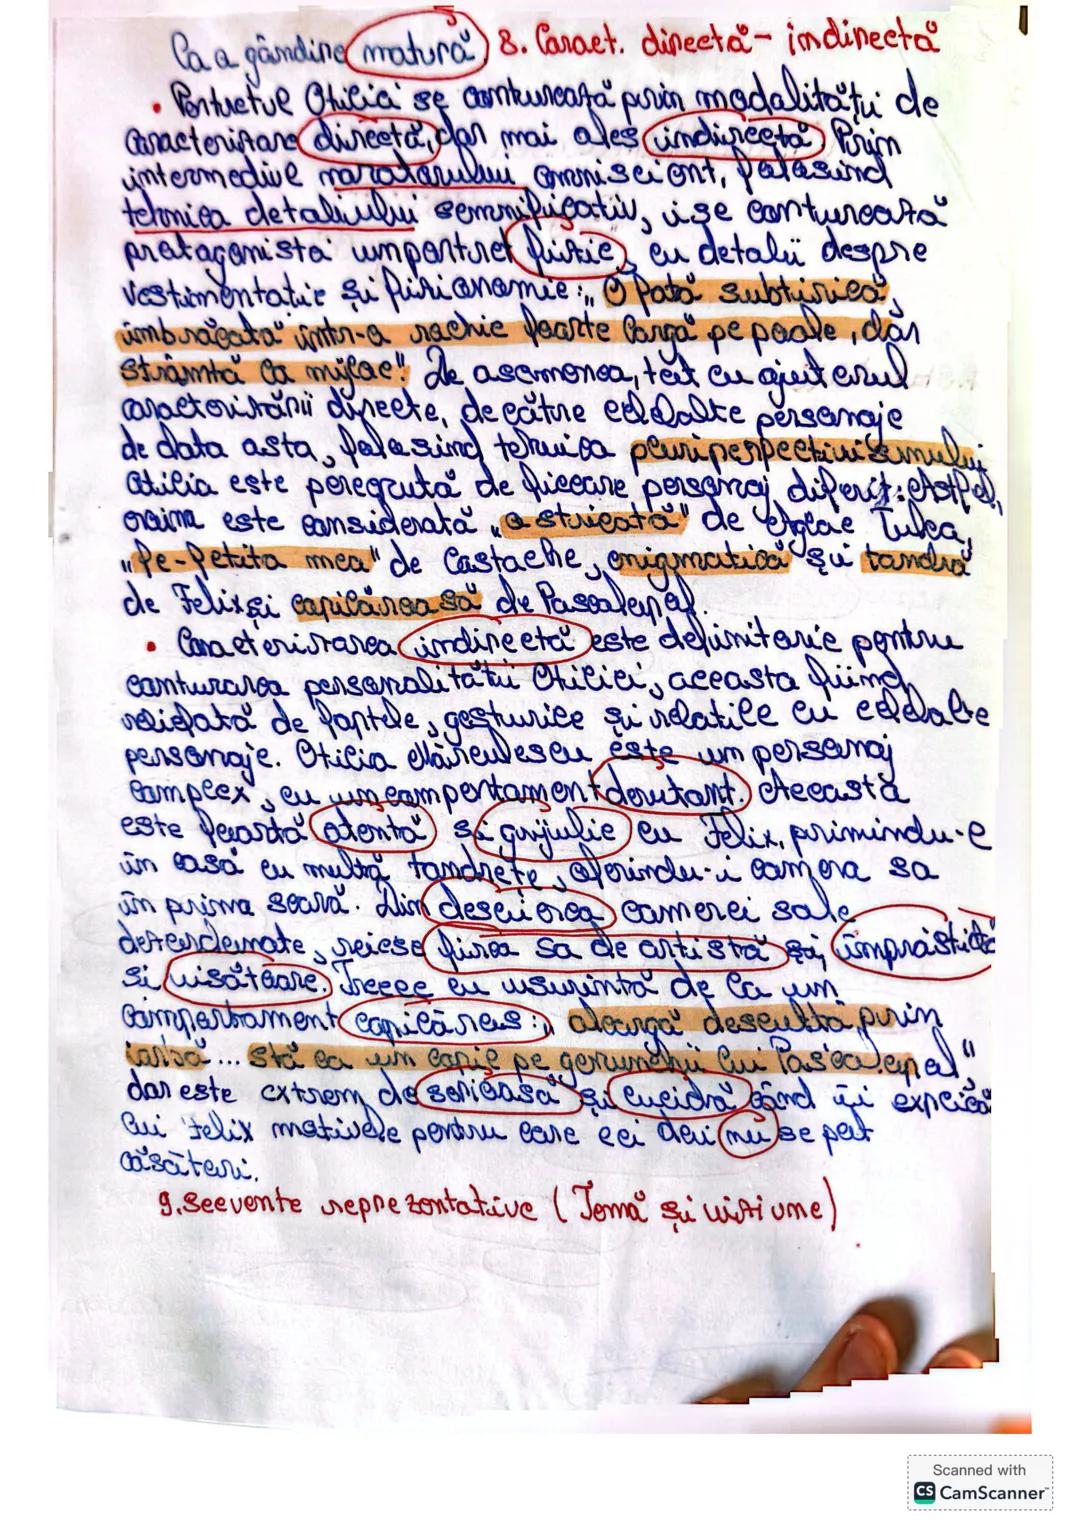 la o gândire matură 8. Caract. directă - indirectă
• Portretul Otiliei se conturează prin modalități de
caracterizare directă, dar mai ales indirectă. Prin
intermediul naratorului omniscient, folosind
tehnica detaliului semnificativ, i se conturează
protagonistei un portret fizic, cu detalii despre
vestimentație și fizionomie: „O fată subțirică,
îmbrăcată într-o rochie foarte largă pe poale, dar
strâmtă la mijloc". De asemenea, tot cu ajutorul
caracterizării directe, de către celelalte personaje
de data asta, folosind tehnica pluriperspectivismului,
Otilia este percepută de fiecare personaj diferit: Astfel,
eroina este considerată „o stricată" de Aglae Tulea,
„fe-fetița mea" de Costache, enigmatică și tandră
de Felix și copilăroasă de Pascalopol.
• Caracterizarea indirectă este definitorie pentru
conturarea personalității Otiliei, aceasta fiind
reliefată de faptele, gesturile și relațiile cu celelalte
personaje. Otilia Mărculescu este un personaj
complex, cu un comportament derutant. Aceasta
este foarte atentă și grijulie cu Felix, primindu-l
în casă cu multă tandrețe, oferindu-i camera sa
în prima seară. Din descrierea camerei sale
dezordonate, reiese firea sa de artistă și împrăștiată
și visătoare. Trece cu ușurință de la un
comportament copilăros: „aleargă desculță prin
iarbă... stă ca un copil pe genunchii lui Pascalopol"
dar este extrem de serioasă și lucidă când îi explică
lui Felix motivele pentru care cei doi nu se pot
căsători.
9. Secvente reprezentative (Temă și viziune)
Scanned with
CS CamScanner